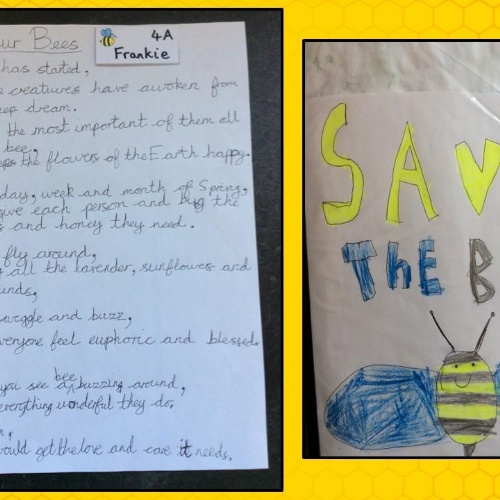 ur Bees
4A
Frankie
has started,
creatures have awoken from
dream.
the most important of them all
bee,
the flowers of the Earth happy.
day, week and month of Spring,
give each person and bug the
and honey they need.
fly around,
all the lavender, sunflowers and
and buzz,
everyone feel euphoric and blessed.
you see a bee buzzing around,
everything wonderful they do,
would get the love and care it needs.
SAV
ThE B